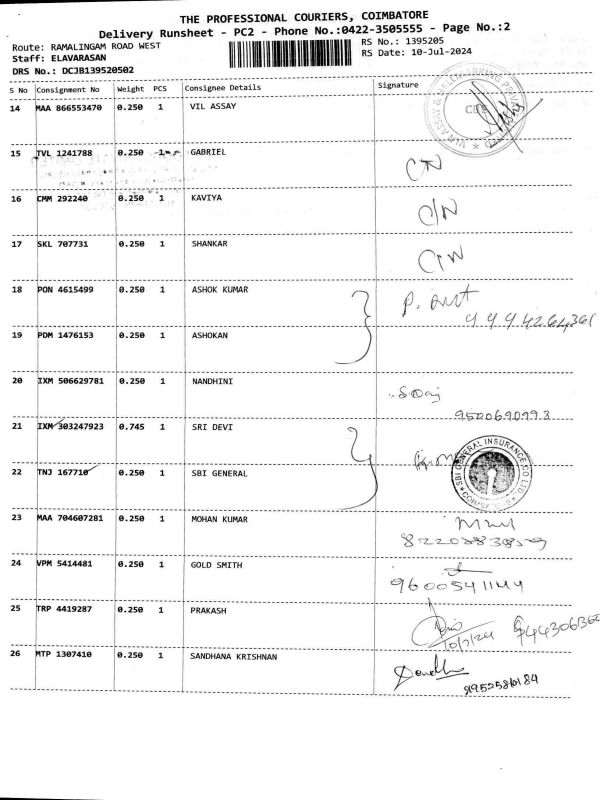 THE PROFESSIONAL COURIERS, COIMBATORE
Delivery Runsheet - PC2 - Phone No.:0422-3505555 - Page No.:2
Route: RAMALINGAM ROAD WEST
RS No.: 1395205
Staff: ELAVARASAN
RS Date: 10-Jul-2024
DRS No.: DCJB139520502
S No Consignment No Weight PCS Consignee Details Signature
14 MAA 866553470 0.250 1 VIL ASSAY
15 TVL 1241788 0.250 1 GABRIEL
CN
16 CMM 292240 0.250 1 KAVIYA
C/N
17 SKL 707731 0.250 1 SHANKAR
C/N
18 PON 4615499 0.250 1 ASHOK KUMAR
19 PDM 1476153 0.250 1 ASHOKAN
20 IXM 506629781 0.250 1 NANDHINI
21 IXM 303247923 0.745 1 SRI DEVI
SBI GENERAL INSURANCE CO LTD
22 TNJ 167710 0.250 1 SBI GENERAL
23 MAA 704607281 0.250 1 MOHAN KUMAR
24 VPM 5414481 0.250 1 GOLD SMITH
9600541144
25 TRP 4419287 0.250 1 PRAKASH
10/7/24
26 MTP 1307410 0.250 1 SANDHANA KRISHNAN